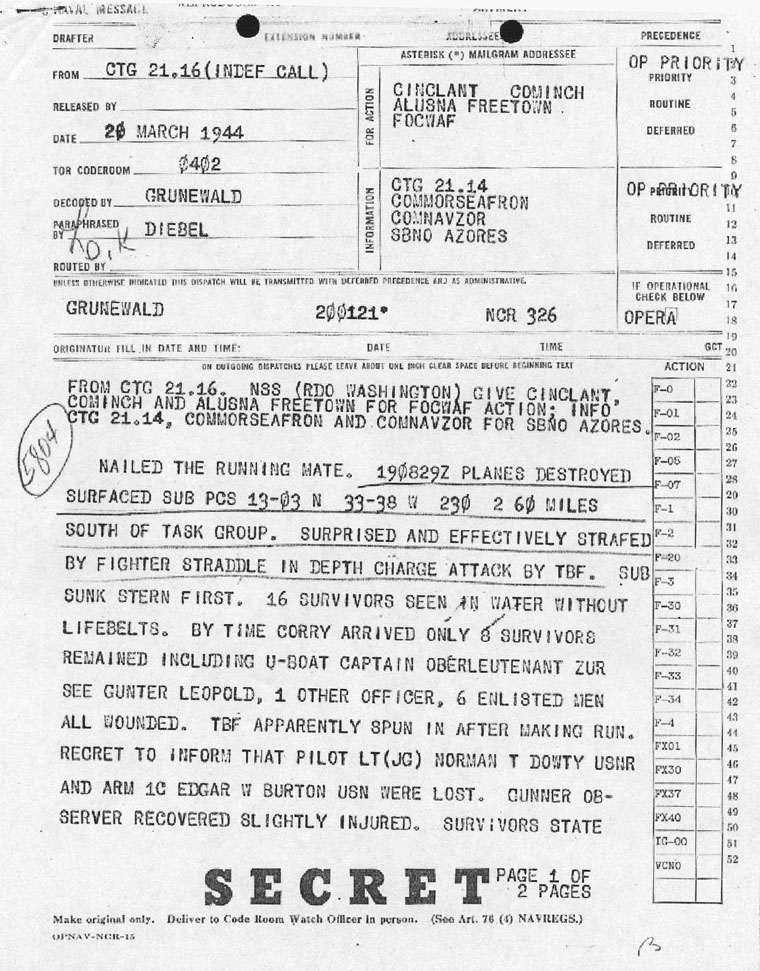 NAVAL MESSAGE
DRAFTER
EXTENSION NUMBER
ADDRESSEE
PRECEDENCE
FROM CTG 21.16(INDEF CALL)
ASTERISK (*) MAILGRAM ADDRESSEE
RELEASED BY
DATE 20 MARCH 1944
TOR CODEROOM 0402
DECODED BY GRUNEWALD
PARAPHRASED BY DIEBEL
ROUTED BY
FOR ACTION
CINCLANT COMINCH
ALUSNA FREETOWN
FOCWAF
OP PRIORITY
PRIORITY
ROUTINE
DEFERRED
INFORMATION
CTG 21.14
COMMORSEAFRON
COMNAVZOR
SBNO AZORES
OP PRIORITY
PRIORITY
ROUTINE
DEFERRED
UNLESS OTHERWISE INDICATED THIS DISPATCH WILL BE TRANSMITTED WITH DEFERRED PRECEDENCE AND AS ADMINISTRATIVE.
IF OPERATIONAL
CHECK BELOW
GRUNEWALD 200121* NCR 326 OPERA
ORIGINATOR FILL IN DATE AND TIME: DATE TIME GCT
ON OUTGOING DISPATCHES PLEASE LEAVE ABOUT ONE INCH CLEAR SPACE BEFORE BEGINNING TEXT
ACTION
FROM CTG 21.16. NSS (RDO WASHINGTON) GIVE CINCLANT
COMINCH AND ALUSNA FREETOWN FOR FOCWAF ACTION; INFO
CTG 21.14, COMMORSEAFRON AND COMNAVZOR FOR SBNO AZORES.
5804
NAILED THE RUNNING MATE. 190829Z PLANES DESTROYED
SURFACED SUB PCS 13-03 N 33-38 W 230 2 60 MILES
SOUTH OF TASK GROUP. SURPRISED AND EFFECTIVELY STRAFED
BY FIGHTER STRADDLE IN DEPTH CHARGE ATTACK BY TBF. SUB
SUNK STERN FIRST. 16 SURVIVORS SEEN IN WATER WITHOUT
LIFEBELTS. BY TIME CORRY ARRIVED ONLY 8 SURVIVORS
REMAINED INCLUDING U-BOAT CAPTAIN OBERLEUTENANT ZUR
SEE GUNTER LEOPOLD, 1 OTHER OFFICER, 6 ENLISTED MEN
ALL WOUNDED. TBF APPARENTLY SPUN IN AFTER MAKING RUN.
REGRET TO INFORM THAT PILOT LT(JG) NORMAN T DOWTY USNR
AND ARM 1C EDGAR W BURTON USN WERE LOST. GUNNER OB-
SERVER RECOVERED SLIGHTLY INJURED. SURVIVORS STATE
F-0
F-01
F-02
F-05
F-07
F-1
F-2
F-20
F-3
F-30
F-31
F-32
F-33
F-34
F-4
FX01
FX30
FX37
FX40
IG-00
VCNO
1
2
3
4
5
6
7
8
9
10
11
12
13
14
15
16
17
18
19
20
21
22
23
24
25
26
27
28
29
30
31
32
33
34
35
36
37
38
39
40
41
42
43
44
45
46
47
48
49
50
51
52
SECRET
PAGE 1 OF
2 PAGES
Make original only. Deliver to Code Room Watch Officer in person. (See Art. 76 (4) NAVREGS.)
OPNAV-NCR-15